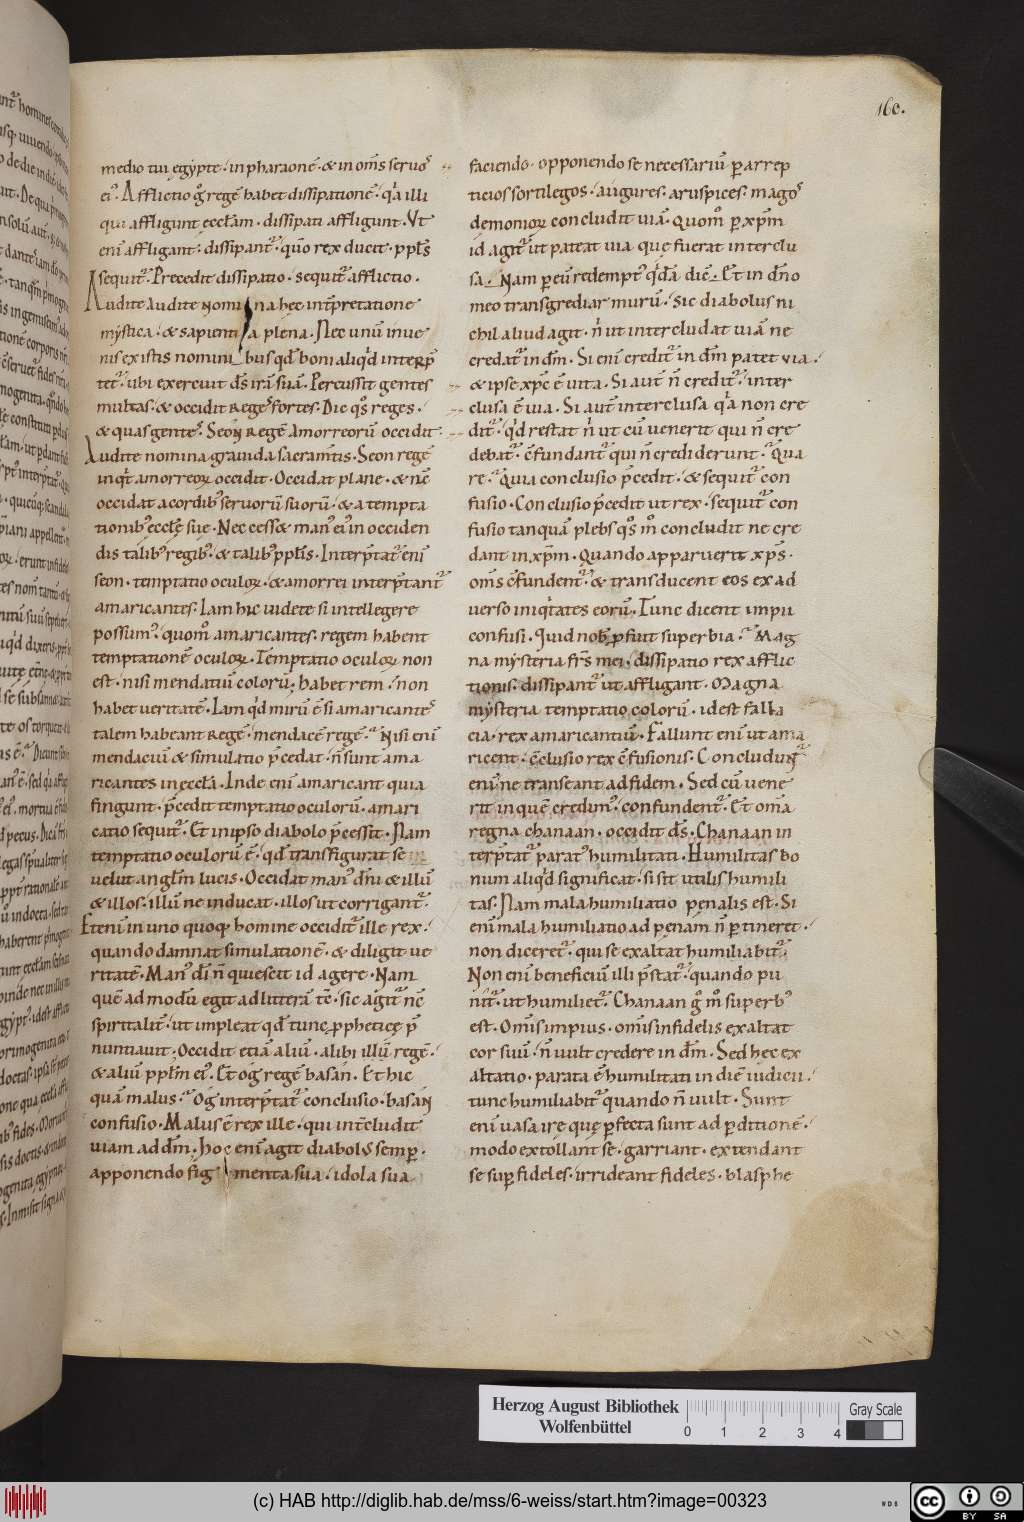 160.
medio tui egypte · in pharaonē · & in om̄s seruoꝰ
eiꝰ · Afflictio g̊ regē habet dissipationē · qͥa illi
qui affligunt eccl̄am · dissipati affligunt · Ut
eni affligant · dissipant᷑ · quō rex ducit · ppl̄s
sequit᷑ · Precedit dissipatio · sequit᷑ afflictio ·
Audite audite nomina hec int̄pretatione
mystica · & sapientia plena · Nec unū inue
nis ex istis nominibus qd̄ boni aliqͥd interp̄
tet᷑ · ubi exercuit d̄s irā suā · Percussit gentes
multas · & occidit regeꝰ fortes · Dic qͦs reges ·
& quas genteꝰ · Seon regē Amorreorū occidit ·
Audite nomina grauida sacram̄tis · Seon regē
inqͥt amorreoꝝ occidit · Occidat plane · & nc̄
occidat a cordibꝰ seruorū suorū · & a tempta
tionibꝰ eccl̄ę suę · Nec cess& manꝰ eiꝰ in occiden
dis talibꝰ regibꝰ · & talibꝰ ppl̄is · Interp̄tat᷑ eni
seon · temptatio oculoꝝ · & amorrei interp̄tant᷑
amaricantes · Iam hic uidete si intellegere
possumꝰ · quom̊ amaricantes · regem habent
temptationē oculoꝝ · Temptatio oculoꝝ non
est · nisi mendatiū colorū · habet rem · non
habet ueritatē · Iam qͥd mirū ē si amaricanteꝰ
talem habeant regē · mendacē regē · Nisi eni
mendaciū & simulatio p̄cedat · n̄ sunt ama
ricantes in eccl̄a · Inde eni amaricant quia
fingunt · p̄cedit temptatio oculorū · amari
catio sequit᷑ · Et in ipso diabolo p̄cessit · Nam
temptatio oculorū ē · qd̄ transfigurat se
uelut angl̄m lucis · Occidat manꝰ dn̄i & illū
& illos · illū ne inducat · illos ut corrigant᷑ ·
Etenī in uno quoqꝫ homine occidit᷑ ille rex ·
quando damnat simulationē · & diligit ue
ritatē · Manꝰ di n̄ quiescit id agere · Nam
quēadmodū egit ad litterā tc̄ · sic agit᷑ nc̄
spiritalit᷑ · ut impleat qd̄ tunc ꝓphetice p̄
nuntiauit · Occidit etiā aliū · alibi illū regē ·
& aliū ppl̄m eiꝰ · Et og regē basan · Et hic
quā malus · Og interp̄tat᷑ conclusio · basan
confusio · Malus ē rex ille · qui int̄cludit
uiam ad dm̄ · Hoc eni agit diabolꝰ semꝑ ·
apponendo figmenta sua · idola sua
faciendo · opponendo se necessariū ꝑ arrep
ticios sortilegos · augures · aruspices · magoꝰ
demonioꝝ concludit uiā · Quom̊ ꝑ xp̄m
id agit᷑ ut pateat uia quę fuerat interclu
sa · Nam ꝑ eū redemptꝰ qͥdā dic̄ · Et in dn̄o
meo transgrediar murū · Sic diabolus ni
chil aliud agit · n̄ ut intercludat uiā ne
credat᷑ in dm̄ · Si eni credit᷑ in dm̄ patet uia ·
& ipse xp̄c ē uita · Si aut̄ n̄ credit᷑ · inter
clusa ē uia · Si aut̄ interclusa qͥa non cre
dit᷑ · qͥd restat n̄ ut cū uenerit qui n̄ cre
debat᷑ · c̄fundant᷑ qui n̄ crediderunt · Qua
re · Quia conclusio p̄cedit · & sequit᷑ con
fusio · Conclusio p̄cedit ut rex · sequit᷑ con
fusio tanquā plebs qͦs m̊ concludit ne cre
dant in xp̄m · Quando apparuerit xp̄s ·
om̄s c̄fundent᷑ · & transducent eos ex ad
uerso iniqͥtates eorū · Tunc dicent impii
confusi · Quid nobꝰ ꝓfuit superbia · Mag
na mysteria fr̄s mei · dissipatio rex afflic
tionis · dissipant᷑ ut affligant · Magna
mysteria temptatio colorū · idest falla
cia · rex amaricantiū · Fallunt eni ut ama
ricent · c̄clusio rex c̄fusionis · Concludunt᷑
eni ne transeant ad fidem · Sed cū uene
rit in quē credimꝰ · confundent᷑ · Et om̄a
regna chanaan · occidit d̄s · Chanaan in
terp̄tat᷑ paratꝰ humilitati · Humilitas bo
num aliqͥd significat · si sit utilis humili
tas · Nam mala humiliatio penalis est · Si
eni mala humiliatio ad penam n̄ ꝑtineret ·
non diceret᷑ · qui se exaltat humiliabit᷑ ·
Non eni beneficiū illi p̄stat᷑ · quando pu
nit᷑ · ut humiliet᷑ · Chanaan g̊ m̊ superbꝰ
est · Om̄is impius · om̄is infidelis exaltat
cor suū · n̄ uult credere in dm̄ · Sed hec ex
altatio · parata ē humilitati in die iudicii ·
tunc humiliabit᷑ quando n̄ uult · Sunt
eni uasa irę quę ꝑfecta sunt ad ꝑditionē ·
modo extollant se · garriant · extendant
se suꝑ fideles · irrideant fideles · blasphe
Herzog August Bibliothek
Wolfenbüttel
0 1 2 3 4
Gray Scale
(c) HAB http://diglib.hab.de/mss/6-weiss/start.htm?image=00323
cc BY SA